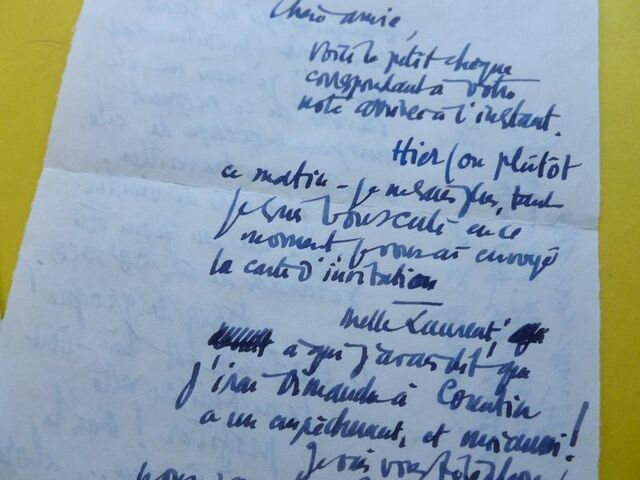 Chère amie,
Voici le petit chèque
correspondant à votre
note arrivée à l'instant.
Hier (ou plutôt
ce matin - je ne sais plus, tant
je suis bousculé en ce
moment, je vous ai envoyé
la carte d'invitation
Melle Laurent,
à qui j'avais dit que
j'irai Dimanche à Corentin
a un empêchement, et moi aussi!
Je vais vous téléphoner